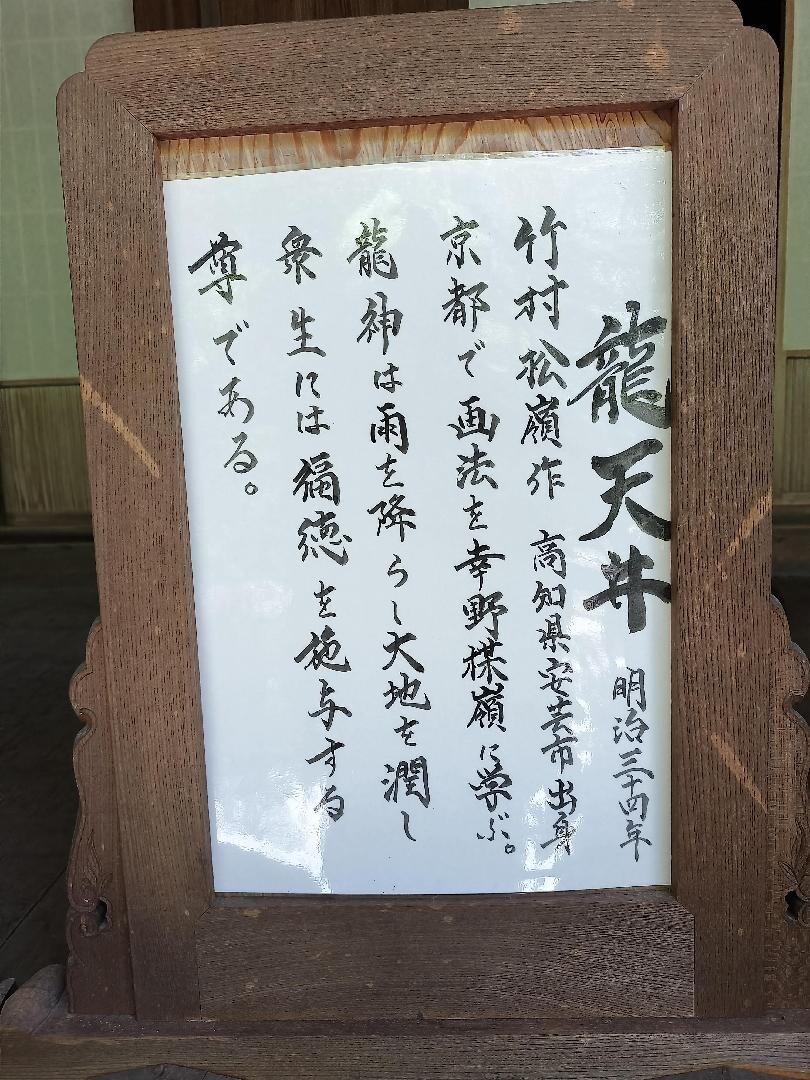 龍天井 明治三十四年
竹村松嶺作 高知県安芸市出身
京都で画法を幸野楳嶺に学ぶ。
龍神は雨を降らし大地を潤し
衆生には福徳を施与する
尊である。